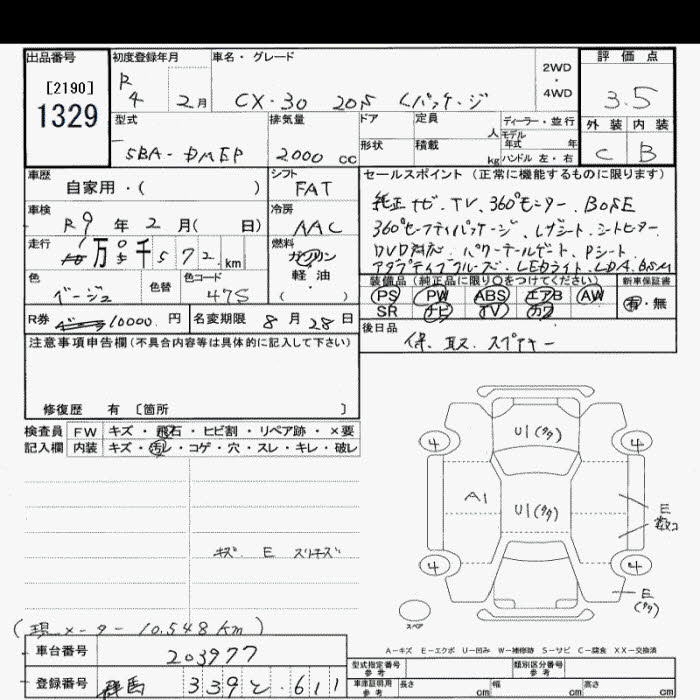 出品番号
[2190]
1329
初度登録年月
R 4 2月
車名・グレード
CX-30 20S Lパッケージ
2WD・4WD
評価点
3.5
型式
5BA-DMEP
排気量
2000 cc
ドア
定員 人
ディーラー・並行
モデル年式 年
形状
積載 kg
ハンドル 左・右
外装 内装
C B
車歴
自家用・( )
シフト
FAT
車検
R9年2月( 日)
冷房
AAC
走行
万 千 572 km
燃料
ガソリン
軽・油
( )
色
ベージュ
色替
色コード
47S
R券 10000円
名変期限 8月28日
セールスポイント(正常に機能するものに限ります)
純正ナビ、TV、360°モニター、BOSE
360°セーフティパッケージ、レザーシート、シートヒーター
DVD対応、パワーテールゲート、Pシート
アダプティブクルーズ、LEDライト、LDA、BSM
装備品(純正品に限り○をつけてください)
PS PW ABS エアB AW
SR ナビ TV カワ
新車保証書
有・無
後日品
保、取、スペアキー
注意事項申告欄(不具合内容等は具体的に記入して下さい)
修復歴 有 〔箇所 〕
検査員記入欄
FW キズ・飛石・ヒビ割・リペア跡・×要
内装 キズ・汚レ・コゲ・穴・スレ・キレ・破レ
U1(タタ)
4 4
A1
U1(タタ)
E
数コ
4 4
E
(タタ)
スペア
キズ E スリキズ
(現メーター 10,548km)
A-キズ E-エクボ U-凹み W-補修跡 S-サビ C-腐食 XX-交換済
車台番号
203977
登録番号
群馬 339 と 611
型式指定番号 参考
類別区分番号 参考
車庫証明用 参考
長さ cm 幅 cm 高さ cm